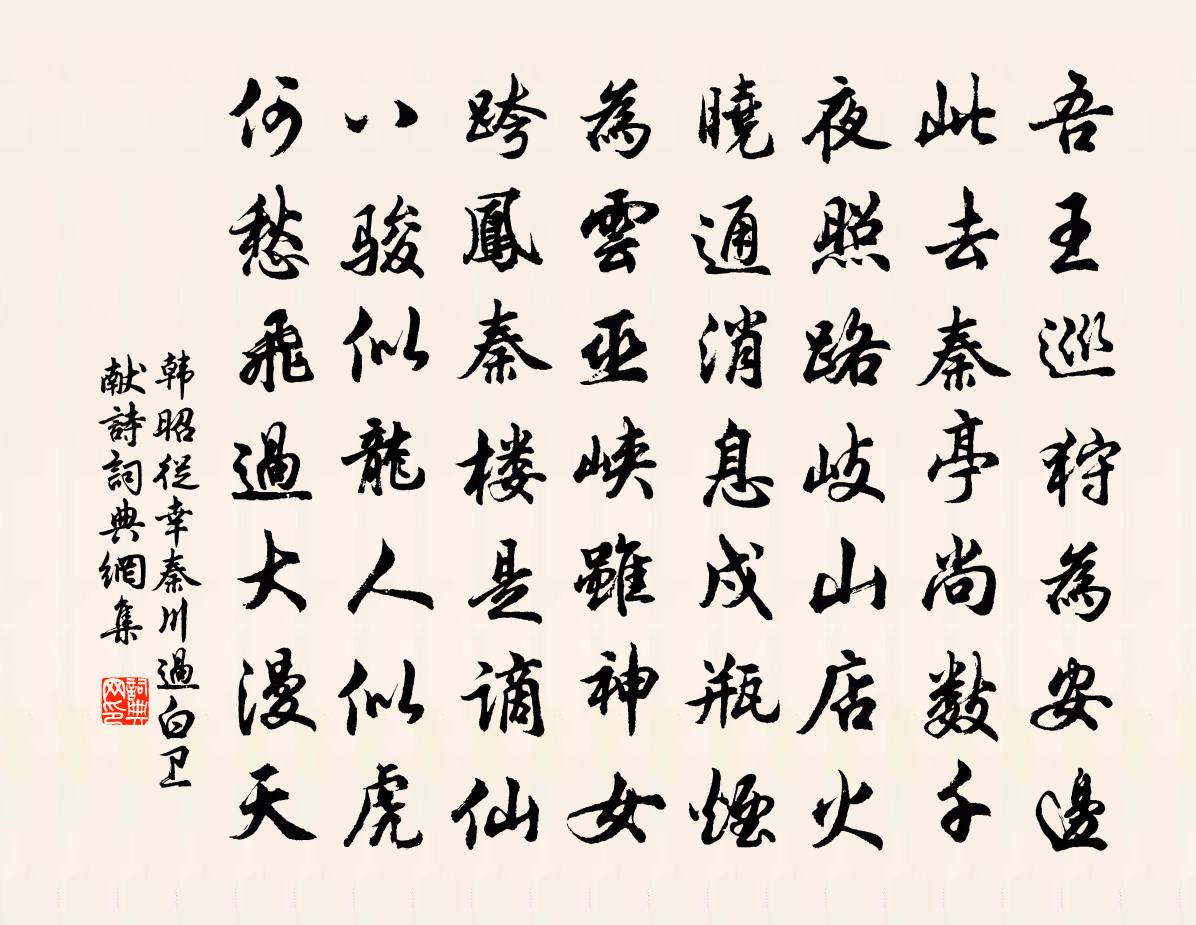 吾王巡狩為安邊
此去秦亭尚數千
夜照路岐山店火
曉通消息戍瓶煙
為雲巫峽雖神女
跨鳳秦楼是谪仙
八骏似龍人似虎
何愁飛過大漫天
韩昭從幸秦川過白卫
献詩詞典網集
詞典
网印